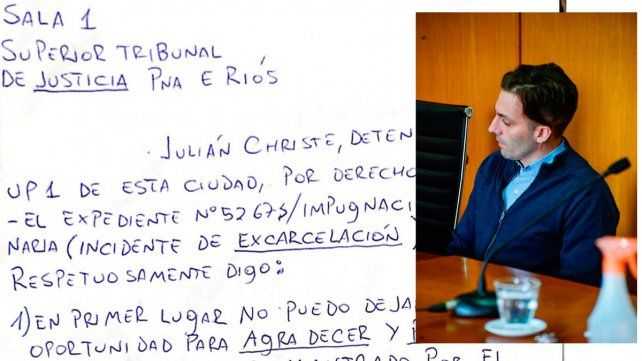 SALA 1
SUPERIOR TRIBUNAL
DE JUSTICIA PNA E RIÓS
JULIÁN CHRISTE, DETEN
UP 1 DE ESTA CIUDAD, POR DERECHO
-EL EXPEDIENTE Nº 5267S/IMPUGNACI
NARIA (INCIDENTE DE EXCARCELACIÓN
RESPETUOSAMENTE DIGO:
1) EN PRIMER LUGAR NO PUEDO DEJA
OPORTUNIDAD PARA AGRADECER Y
POR EL